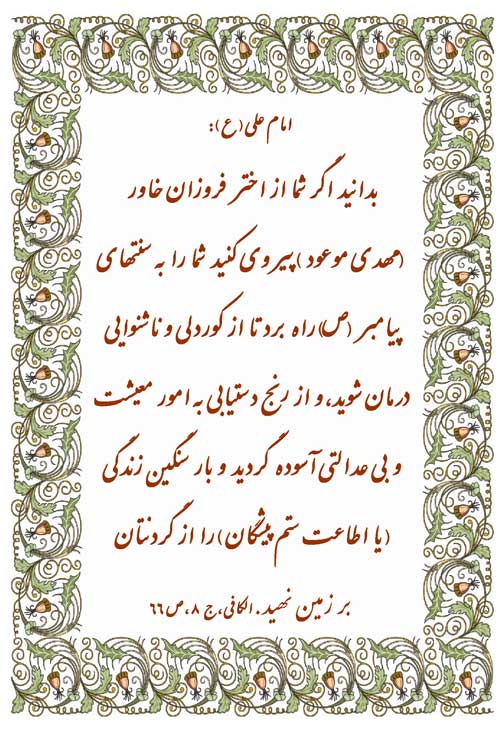 امام علی (ع):
بدانید اگر شما از اختر فروزان خاور
(مهدی موعود) پیروی کنید شما را به سنتهای
پیامبر (ص) راه برد تا از کوردلی و ناشنوایی
درمان شوید، و از رنج دستیابی به امور معیشت
و بی عدالتی آسوده گردید و بار سنگین زندگی
(یا اطاعت ستم پیشگان) را از گردنتان
بر زمین نهید. الکافی، ج ۸، ص ۶۶